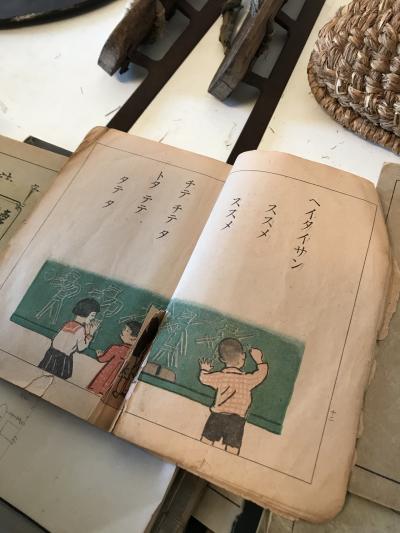 ヘイタイサン
ススメ
ススメ
十二
チテ チテ タ
トタ テテ
タテ タ